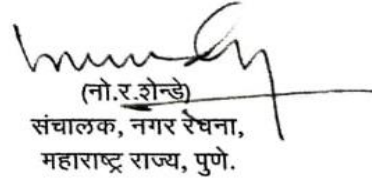 (नो.र.शेन्डे)
संचालक, नगर रचना,
महाराष्ट्र राज्य, पुणे.